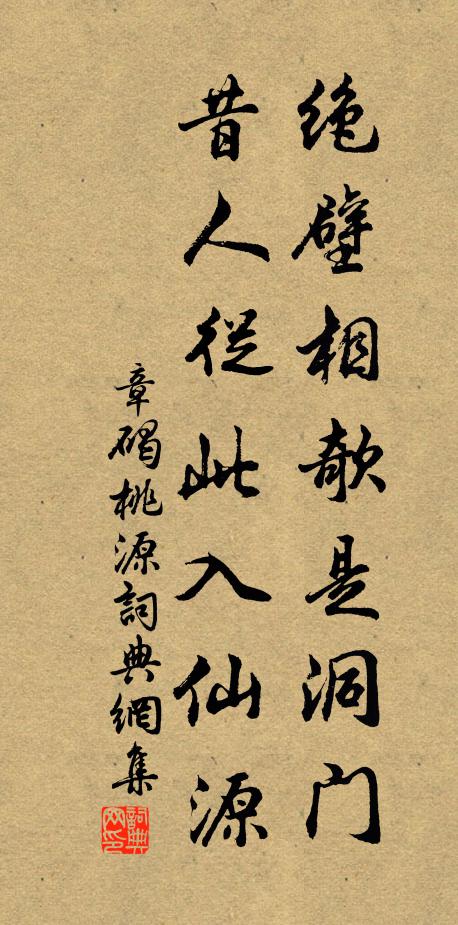 绝壁相欹是洞门
昔人從此入仙源
章碣桃源詞典網集
詞典网印